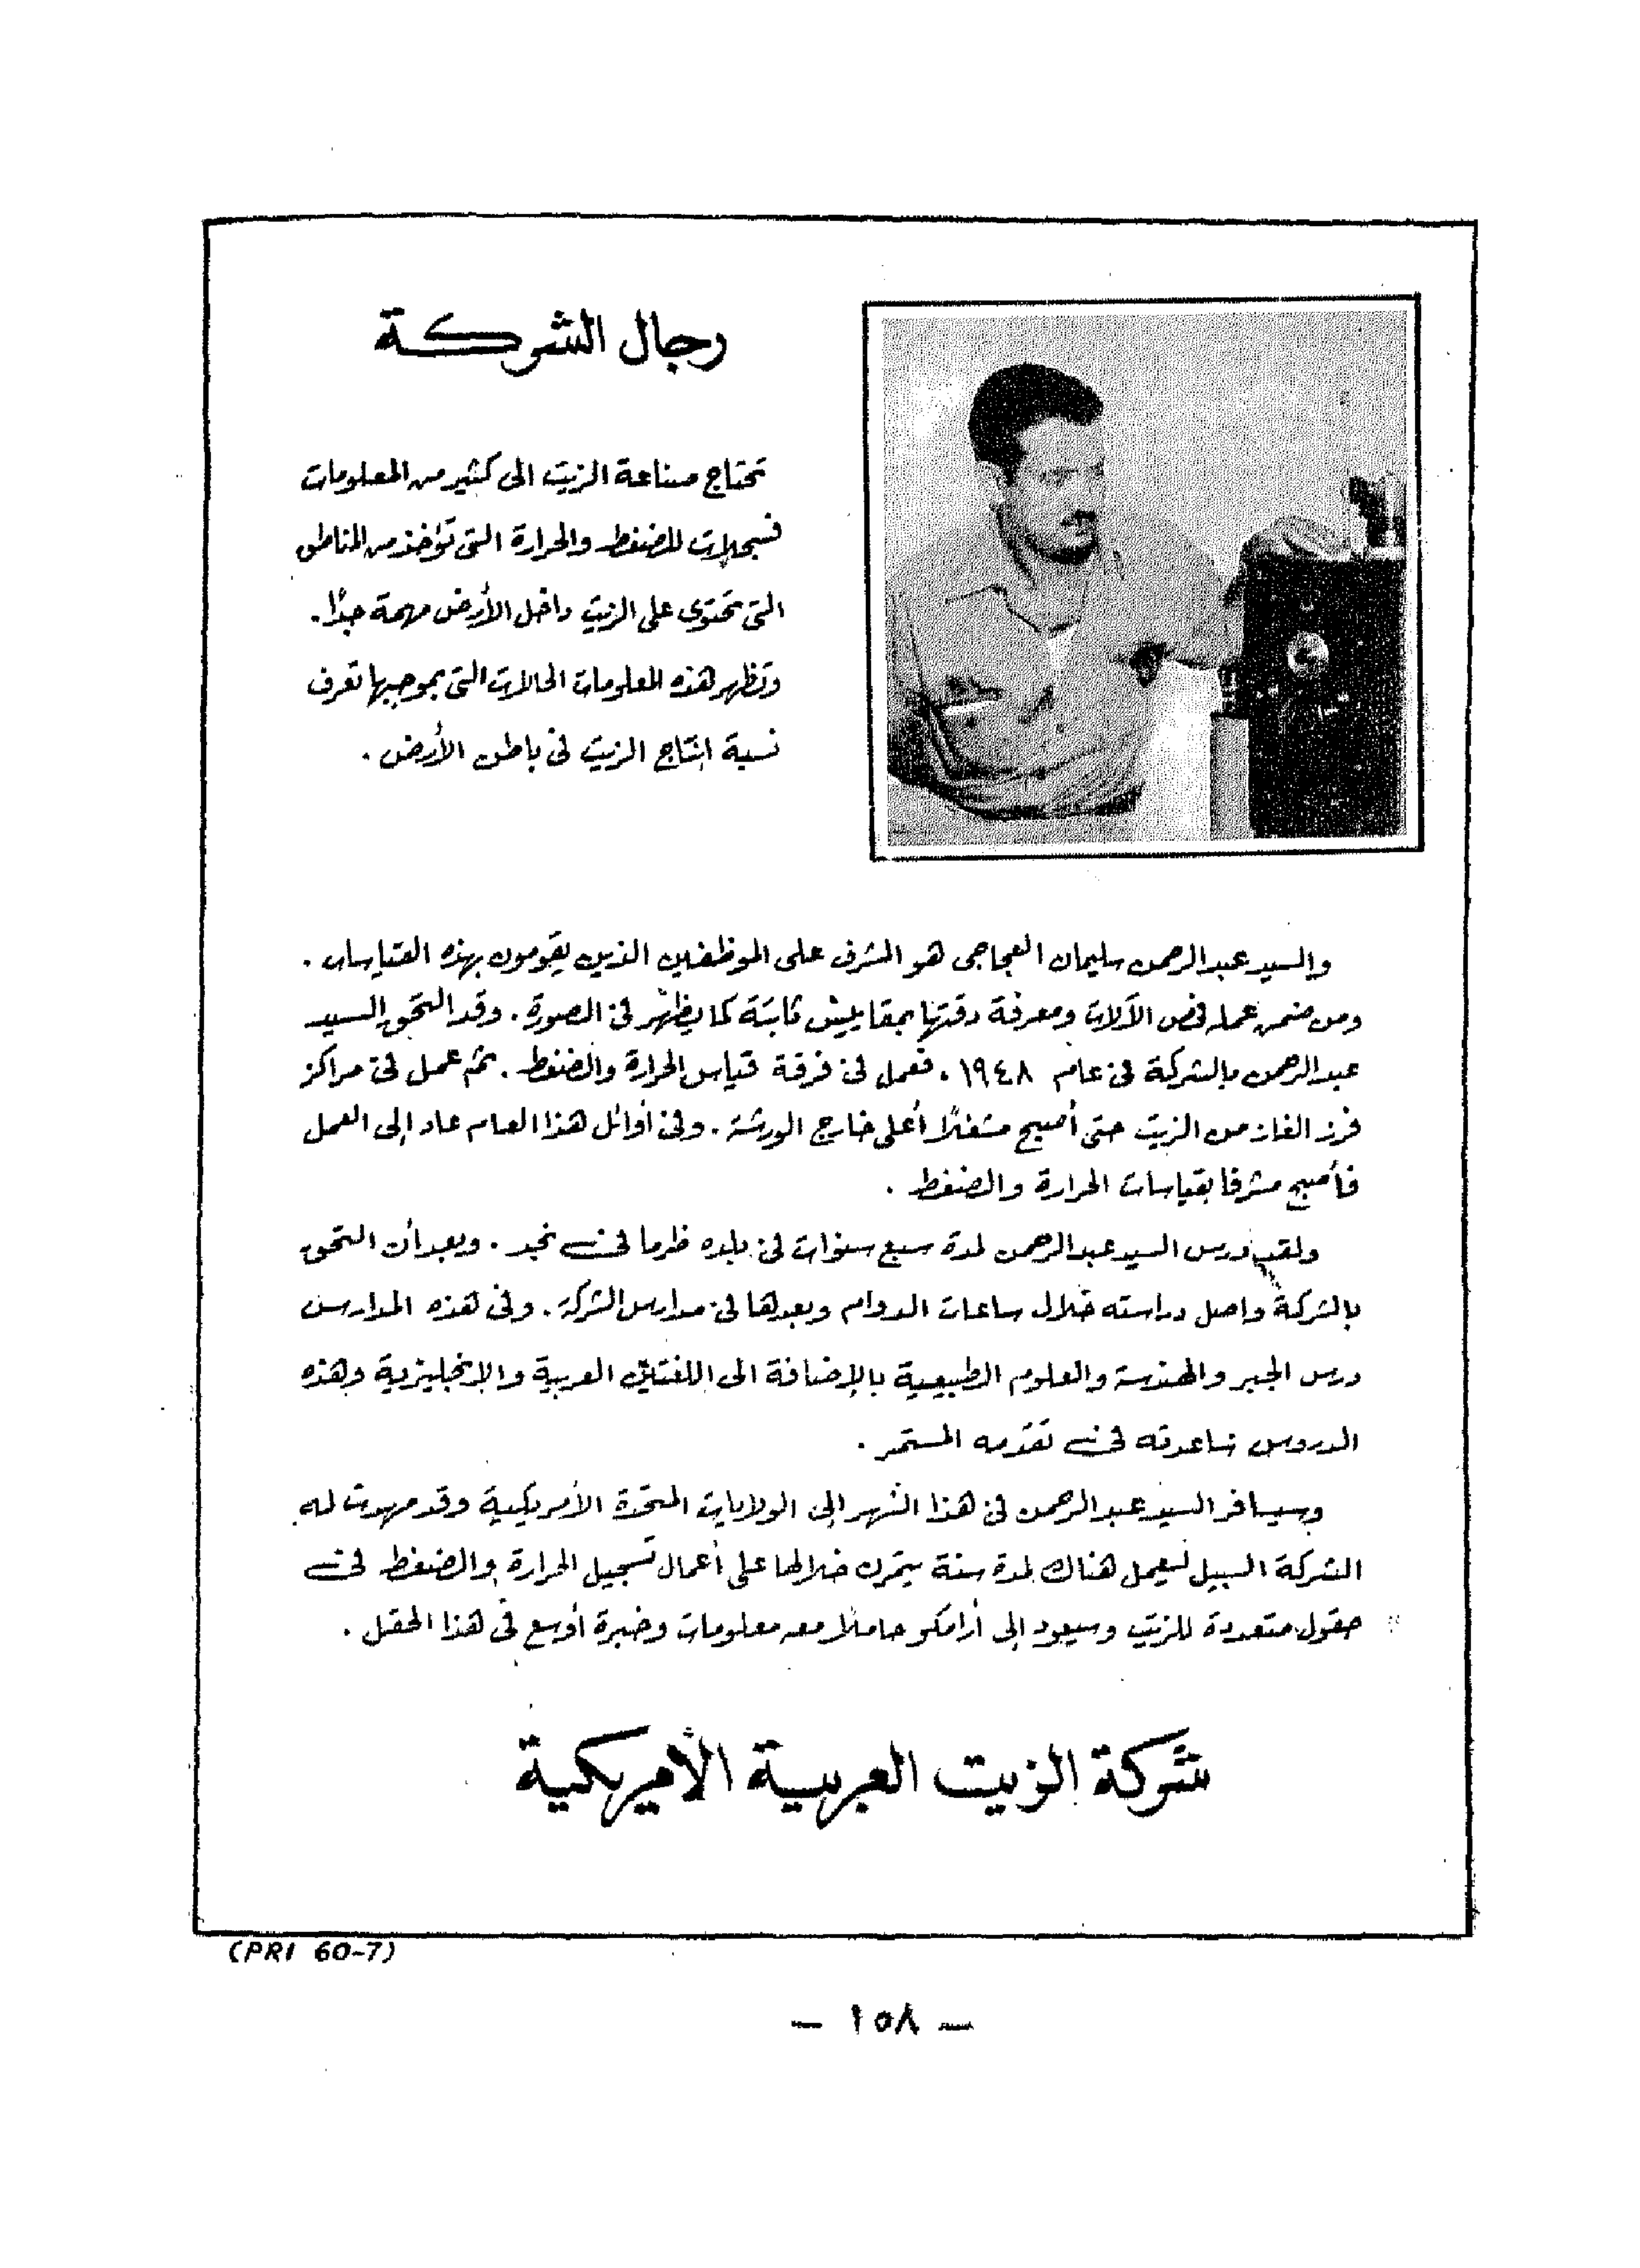 رجال الشركة
تحتاج صناعة الزيت الى كثير من المعلومات
فسجلات للضغط والحرارة التى تؤخذ من المناطق
التى تحتوى على الزيت داخل الأرض مهمة جدًا.
وتظهر هذه المعلومات الحالات التى بموجبها تعرف
نسبة انتاج الزيت فى باطن الأرض .
والسيد عبدالرحمن سليمان العجاجى هو المشرف على الموظفين الذين يقومون بهذه القياسات .
ومن ضمن عمله فحص الآلات ومعرفة دقتها بمقاييس ثابتة كما يظهر فى الصورة . وقد التحق السيد
عبدالرحمن بالشركة فى عام ١٩٤٨ . فعمل فى فرقة قياس الحرارة والضغط . ثم عمل فى مراكز
فرز الغاز من الزيت حتى أصبح مشغلًا أعلى خارج الورشة . وفى أوائل هذا العام عاد إلى العمل
فأصبح مشرفا بقياسات الحرارة والضغط .
ولقد درس السيد عبدالرحمن لمدة سبع سنوات فى بلده ظرما فى نجد . وبعد أن التحق
بالشركة واصل دراسته خلال ساعات الدوام وبعدها فى مدارس الشركة . وفى هذه المدارس
درس الجبر والهندسة والعلوم الطبيعية بالإضافة الى اللغتين العربية والإنجليزية وهذه
الدروس ساعدته فى تقدمه المستمر .
وسيسافر السيد عبد الرحمن فى هذا الشهر إلى الولايات المتحدة الأمريكية وقد مهدت له
الشركة السبيل ليعمل هناك لمدة سنة يتمرن خلالها على أعمال تسجيل الحرارة والضغط فى
حقول متعددة للزيت وسيعود إلى أرامكو حاملًا معه معلومات وخبرة أوسع فى هذا الحقل .
شركة الزيت العربية الأمريكية
(PRI 60-7)
— ١٥٨ —